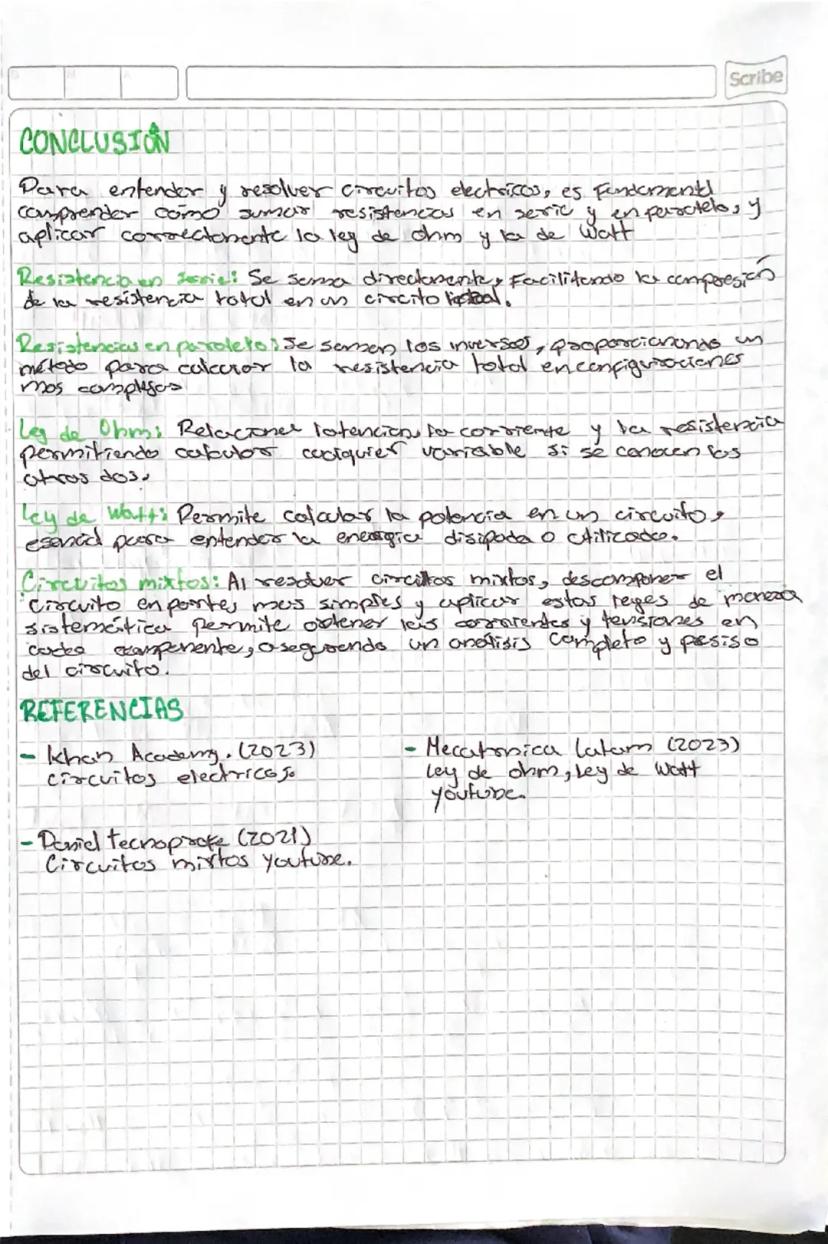 Scribe
CONCLUSIÓN
Para entender y resolver circuitos electricos, es fundamental
comprender cómo sumar resistencias en serie y en paralelo, y
aplicar correctamente la ley de ohm y la de Watt
Resistencia en serie: Se suma directamente, facilitando la compresión
de la resistencia total en un circito
Resistencias en paralelo: Se suman los inversos, proporcionando un
método para calcular la resistencia total en configuraciones
mas complejas
Ley de Ohm: Relaciona la tencion, la corriente y la resistencia
permitiendo calcular cualquier variable si se conocen las
otras dos.
Ley de Watt: Permite calcular la potencia en un circuito,
esencial para entender la energia disipada o utilizada.
Circuitos mixtos: Al resolver circuitos mixtos, descomponer el
circuito en partes mas simples y aplicar estas leyes de manera
sistemática permite obtener las corrientes y tensiones en
cada componente, asegurando un análisis completo y presiso
del circuito.
REFERENCIAS
- Khan Academy. (2023)
circuitos electricos.
- Mecatronica Latam (2023)
Ley de ohm, Ley de Watt
youtube.
- Daniel tecnoprofe (2021)
Circuitos mixtos youtube.